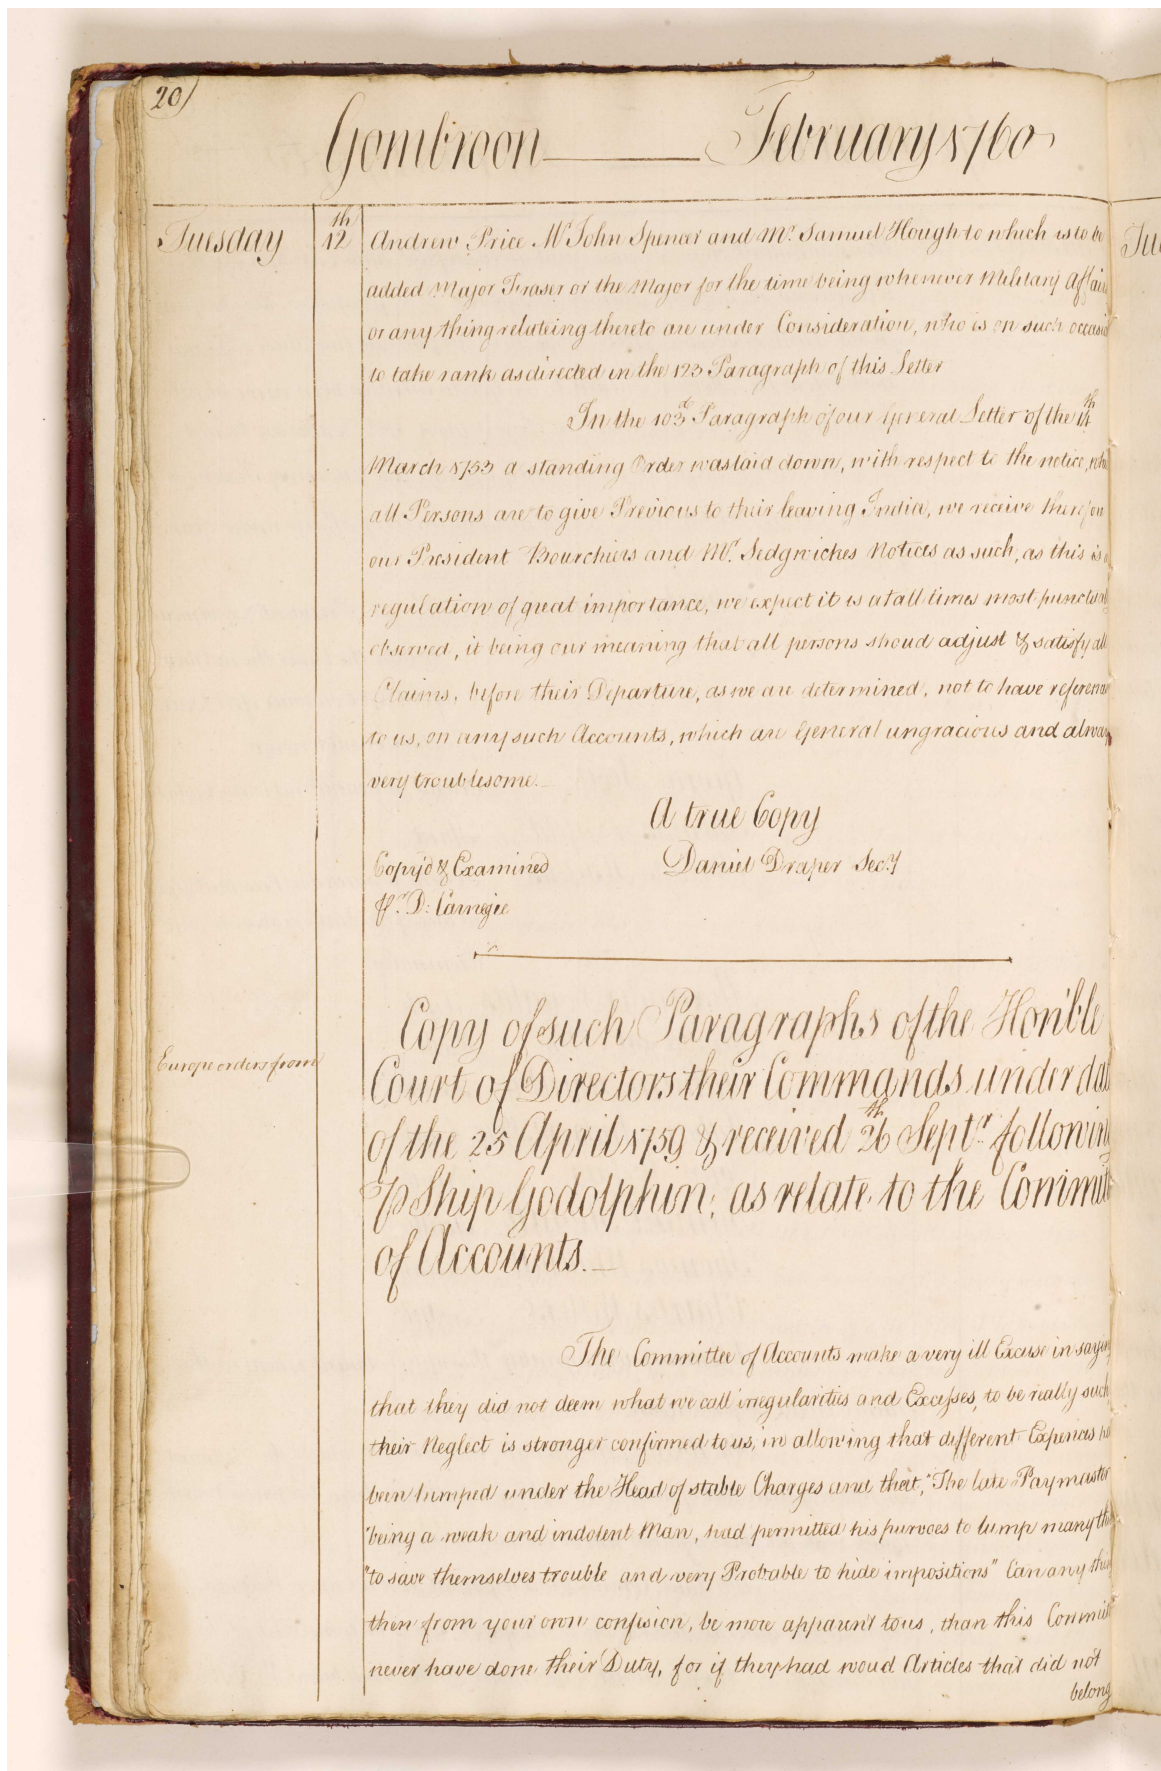 20
Gombroon February 1760
Tuesday 12th Andrew Price Mr John Spencer and Mr. Samuel Hough to which is to be
added Major Fraser or the Major for the time being whenever Military Affairs
or any thing relateing thereto are under Consideration, who is on such occasi
to take rank as directed in the 123 Paragraph of this Letter
In the 103d Paragraph of our General Letter of the 14th
March 1753 a standing Order was laid down, with respect to the notice, whi
all Persons are to give Previous to their leaving India, we receive therefore
our President Bourchiers and Mr. Sedgwickes Notices as such, as this is a
regulation of great importance, we expect it is at all times most punctual
observed, it being our meaning that all persons shoud adjust & satisfy all
Claims, before their Departure, as we are determined, not to have referenc
to us, on any such Accounts, which are General ungracious and alway
very troublesome.
A true Copy
Copy'd & Examined Daniel Draper Secry
pr. D: Carnegie
Copy of such Paragraphs of the Hon'ble
Europe orders from
Court of Directors their Commands under dat
of the 25 April 1759 & received 26th Septr following
p Ship Godolphin; as relate to the Committ
of Accounts.
The Committee of Accounts make a very ill Excuse in saying
that they did not deem what we call irregularities and Excesses, to be really such
their Neglect is stronger confirmed to us, in allowing that different Expences
been lumped under the Head of stable Charges and that, "The late Paymaster
"being a weak and indolent Man, had permitted his purvoes to lump many thi
"to save themselves trouble and very Probable to hide impositions" Can any thing
then from your own confesion, be more apparent to us, than this Committ
never have done their Duty, for if they had woud Articles that did not
belong